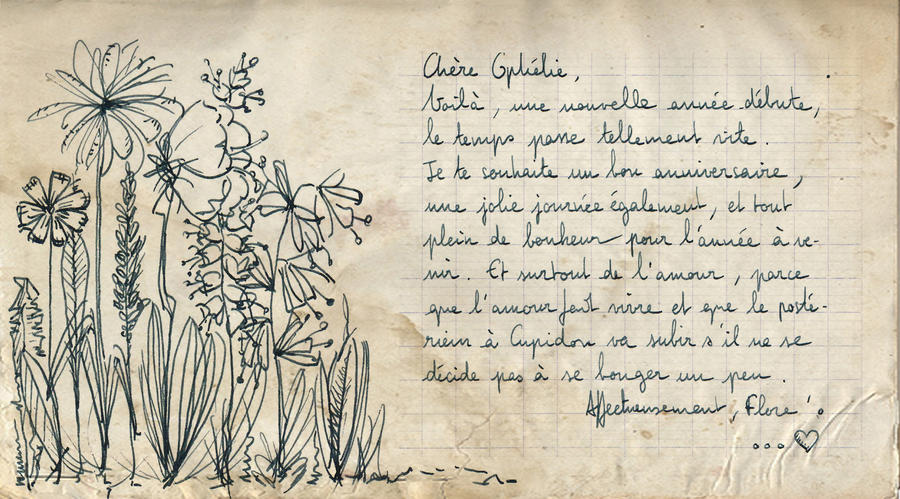 Chère Ophélie,
Voilà, une nouvelle année débute,
le temps passe tellement vite.
Je te souhaite un bon anniversaire,
une jolie journée également, et tout
plein de bonheur pour l'année à ve-
nir. Et surtout de l'amour, parce
que l'amour fait vivre et que le posté-
rieur à Cupidon va subir s'il ne se
décide pas à se bouger un peu.
Affectueusement, Flore